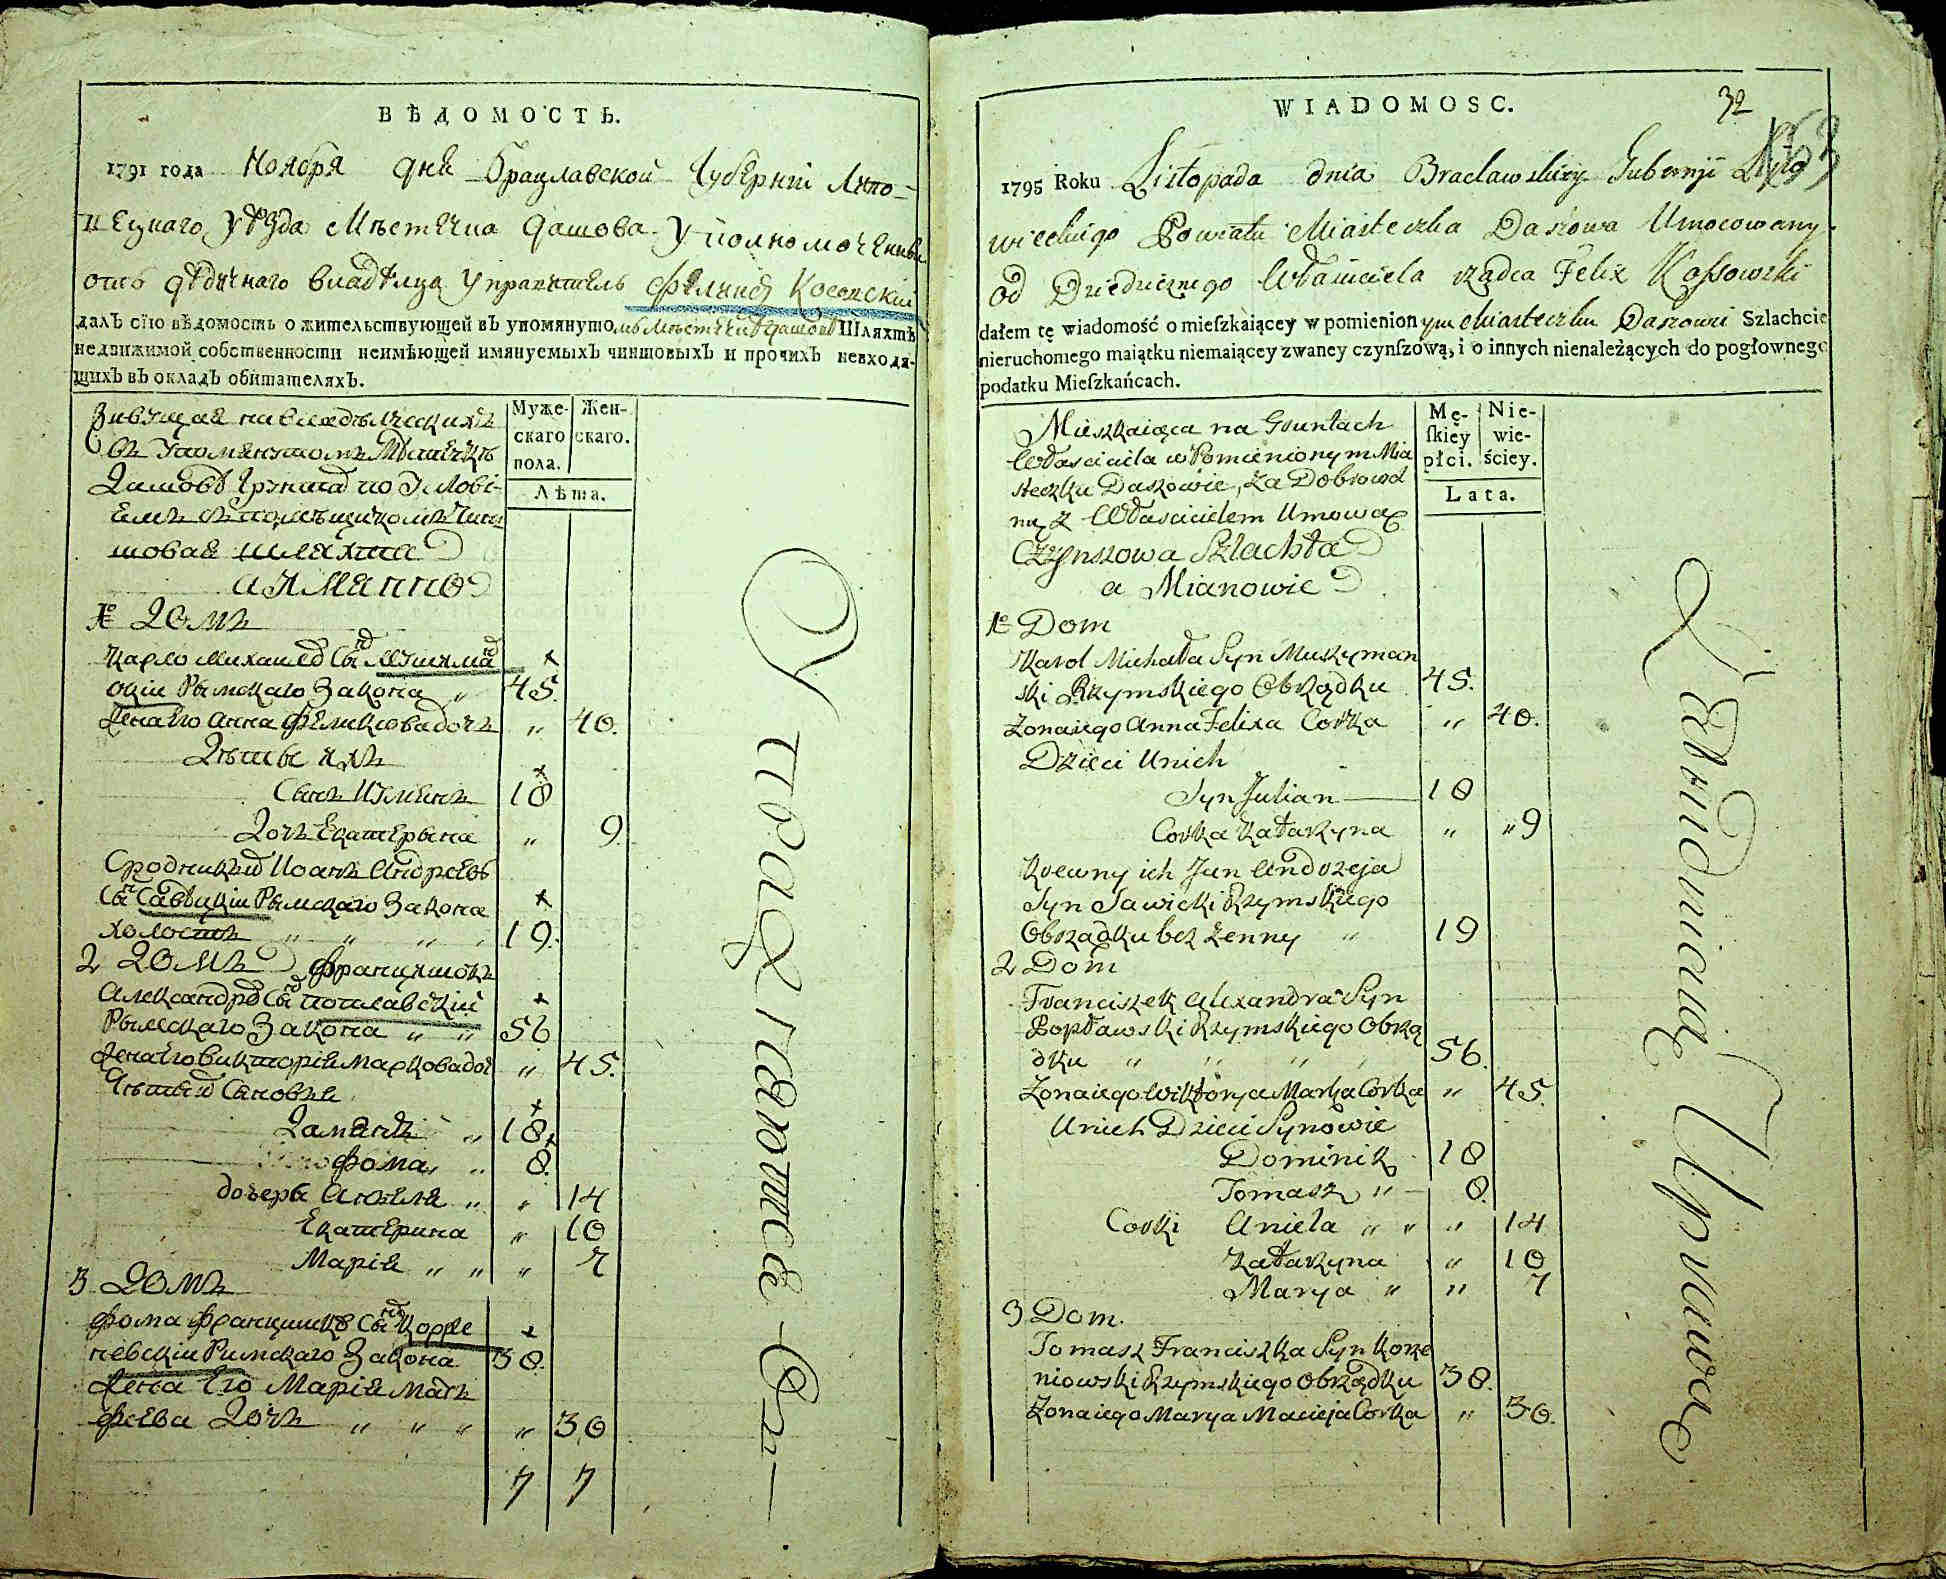 ВѢДОМОСТЬ.
1791 года Ноября дня Брацлавской Губерніи Липо-
вецкаго уѣзда Мѣстечка Дашова Уполномоченны
отъ дѣдичнаго владѣлца Управитель
далЪ сїю вѣдомость о жительствующей вЪ упомянутомъ Мѣстечкѣ Дашовѣ Шляхтѣ
недвижимой собственности неимѣющей имянуемыхЪ чиншовыхЪ и прочихЪ невходя-
щихЪ вЪ окладЪ обитателяхЪ.
Муже-
скаго
пола.
Жен-
скаго.
Лѣта.
въ Упомянутомъ Мѣстечкѣ
Чин
шовая шляхта
а имянно
1е Домъ
Карло Михаила Сынъ Мушиман
скіи Рымскаго Закона „ 45
Жена Его Анна Феликсова дочь „ 40.
Дѣты ихъ
Сынъ Юлианъ 18
Дочь Екатерына „ 9.
Сродникъ Иоанъ Андреевъ
Сынъ Савицкіи Рымскаго Закона
холостъ „ „ „ 19.
2 Домъ Францишокъ
Александра Сынъ Поплавскій
Рымскаго Закона „ „ 56
Жена Его Викторія Маркова доч „ 45.
Сыновья
„ 18
Фома „ „ 8.
дочеры Анеля „ „ 14
Екатерина „ 10
Марія „ „ „ 7
3 Домъ
Фома Францишка Сынъ Корже
невскіи Римскаго Закона 38.
Жена Его Марія Мать
феева Дочь „ „ „ „ 30
7 7
WIADOMOSC.
32
1795 Roku Listopada dnia Bracławskiey Gubernji Lipo
wieckiego Powiatu Miasteczka Daszowa Umocowany
od Dziedzicznego Właściciela rządca Felix Kossowski
dałem tę wiadomość o mieſzkaiącey w pomienionym Miasteczku Daszowi Szlachcie
nieruchomego maiątku niemaiącey zwaney czynſzową, i o innych nienależących do pogłownego
podatku Mieſzkańcach.
Mę-
ſkiey
płci.
Nie-
wie-
ściey.
Lata.
Mieszkaiąca na Gruntach
Właściciela w Pomienionym Mia
steczku Daszowie, za Dobrowol
ną z Właścicielem Umową
Czynszowa Szlachta
a Mianowie
1e Dom
Karol Michała Syn Muszyman
ski Rzymskiego Obrządku 45.
Zona iego Anna Felixa Corka „ 40.
Dzieci Unich
Syn Julian 18
Corka Katarzyna „ „ 9
Krewny ich Jan Andrzeja
Syn Sawicki Rzymskiego
Obrządku bez zenny „ 19
2 Dom
Franciszek Alexandra Syn
Popławski Rzymskiego Obrzą
dku „ „ „ „ 56.
Zona iego Wiktorya Marka Corka „ 45.
Unich Dzieci Synowie
Dominik 18
Tomasz „ 8.
Corki Aniela „ „ „ 14
Katarzyna „ 10
Marya „ „ 7
3 Dom.
Tomasz Franciszka Syn Korze
niowski Rzymskiego Obrządku 38.
Zona iego Marya Macieja Corka „ 30.